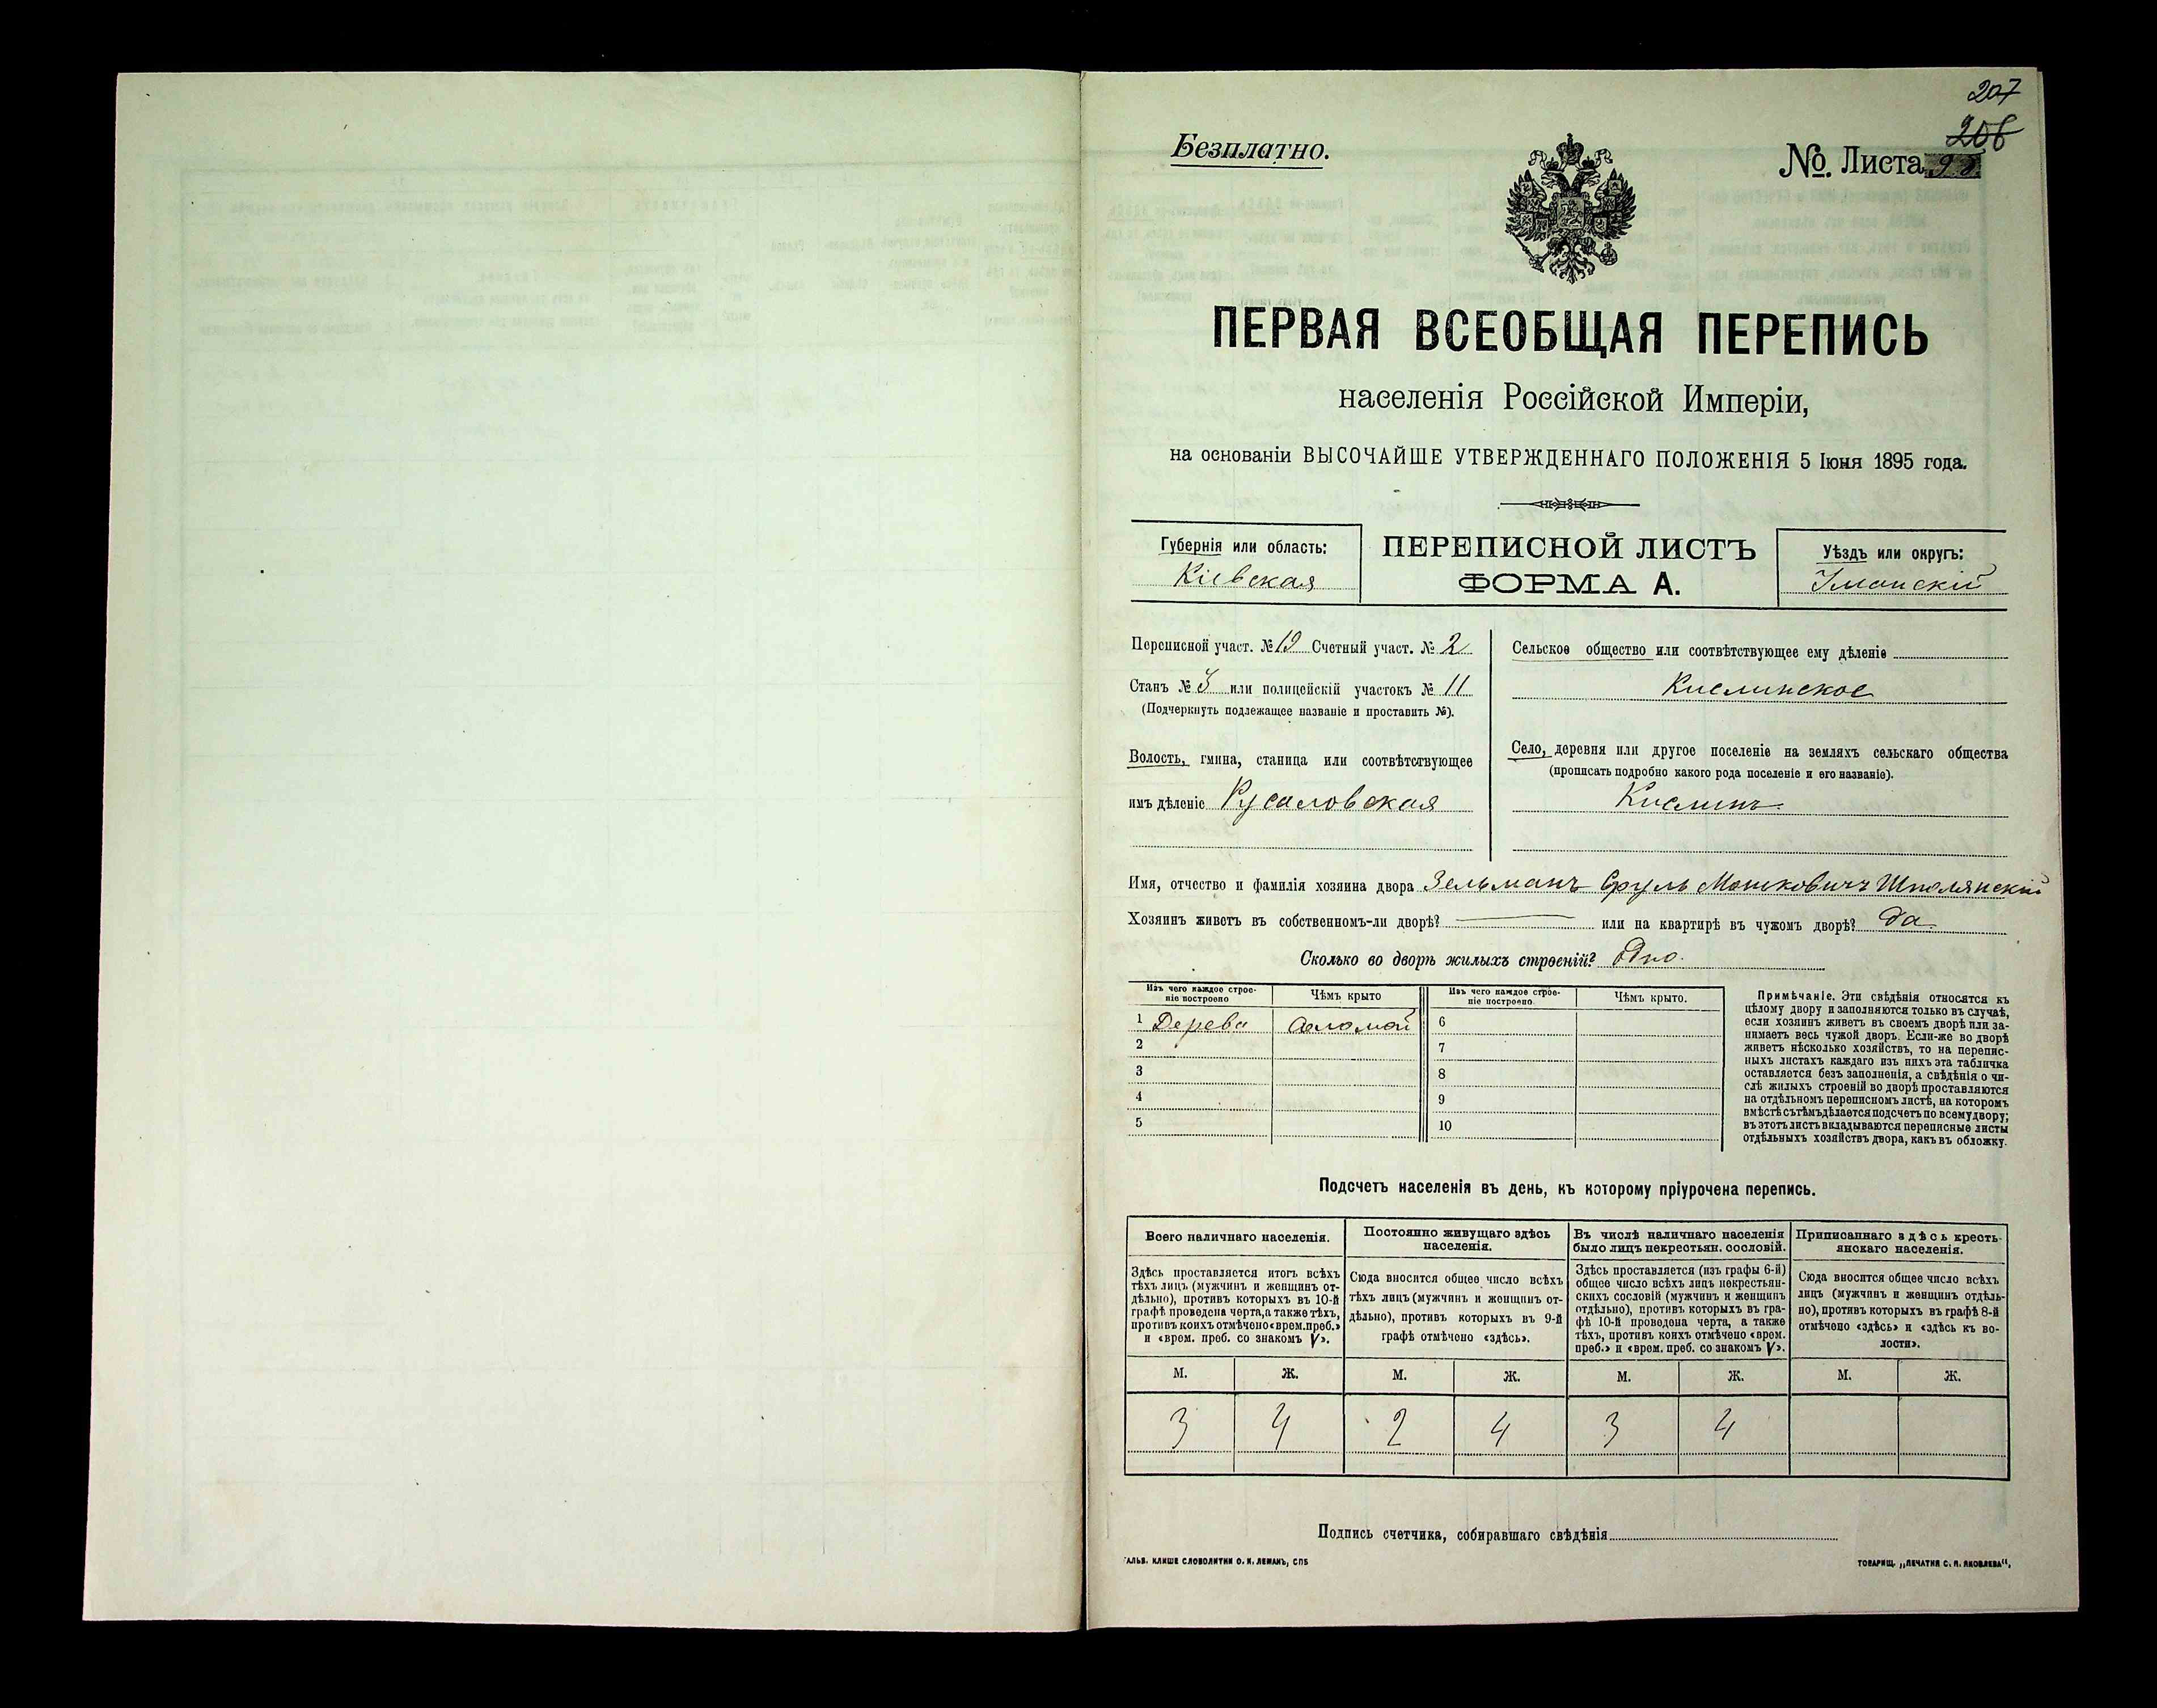 207
206
Безплатно.
№. Листа 98
ПЕРВАЯ ВСЕОБЩАЯ ПЕРЕПИСЬ
населенія Россійской Имперіи,
на основаніи ВЫСОЧАЙШЕ УТВЕРЖДЕННАГО ПОЛОЖЕНІЯ 5 Іюня 1895 года.
Губернія или область:
Кіевская
ПЕРЕПИСНОЙ ЛИСТЪ
ФОРМА А.
Уѣздъ или округъ:
Уманскій
Переписной участ. № 19 Счетный участ. № 2
Станъ № 3 или полицейскій участокъ № 11
(Подчеркнуть подлежащее названіе и проставить №).
Волость, гмина, станица или соотвѣтствующее
имъ дѣленіе Русаловская
Сельское общество или соотвѣтствующее ему дѣленіе
Кислинское
Село, деревня или другое поселеніе на земляхъ сельскаго общества
(прописать подробно какого рода поселеніе и его названіе).
Кислинъ
Имя, отчество и фамилія хозяина двора Зельманъ Сруль Мошковичъ Шполянскій
Хозяинъ живетъ въ собственномъ-ли дворѣ? или на квартирѣ въ чужомъ дворѣ? да
Сколько во дворѣ жилыхъ строеній? Одно.
Изъ чего каждое строе-
ніе построено
Чѣмъ крыто
Изъ чего каждое строе-
ніе построено
Чѣмъ крыто.
1 Дерева Соломой 6
2 7
3 8
4 9
5 10
Примѣчаніе. Эти свѣдѣнія относятся къ
цѣлому двору и заполняются только въ случаѣ,
если хозяинъ живетъ въ своемъ дворѣ или за-
нимаетъ весь чужой дворъ. Если-же во дворѣ
живетъ нѣсколько хозяйствъ, то на перепис-
ныхъ листахъ каждаго изъ нихъ эта табличка
оставляется безъ заполненія, а свѣдѣнія о чи-
слѣ жилыхъ строеній во дворѣ проставляются
на отдѣльномъ переписномъ листѣ, на которомъ
вмѣстѣ съ тѣмъ дѣлается подсчетъ по всему двору;
въ этотъ листъ вкладываются переписные листы
отдѣльныхъ хозяйствъ двора, какъ въ обложку.
Подсчетъ населенія въ день, къ которому пріурочена перепись.
Всего наличнаго населенія.
Здѣсь проставляется итогъ всѣхъ
тѣхъ лицъ (мужчинъ и женщинъ от-
дѣльно), противъ которыхъ въ 10-й
графѣ проведена черта, а также тѣхъ,
противъ коихъ отмѣчено «врем. преб.»
и «врем. преб. со знакомъ V».
Постоянно живущаго здѣсь
населенія.
Сюда вносится общее число всѣхъ
тѣхъ лицъ (мужчинъ и женщинъ от-
дѣльно), противъ которыхъ въ 9-й
графѣ отмѣчено «здѣсь».
Въ числѣ наличнаго населенія
было лицъ некрестьян. сословій.
Здѣсь проставляется (изъ графы 6-й)
общее число всѣхъ лицъ некрестьян-
скихъ сословій (мужчинъ и женщинъ
отдѣльно), противъ которыхъ въ гра-
фѣ 10-й проведена черта, а также
тѣхъ, противъ коихъ отмѣчено «врем.
преб.» и «врем. преб. со знакомъ V».
Приписаннаго здѣсь кресть-
янскаго населенія.
Сюда вносится общее число всѣхъ
лицъ (мужчинъ и женщинъ отдѣль-
но), противъ которыхъ въ графѣ 8-й
отмѣчено «здѣсь» и «здѣсь къ во-
лости».
М. Ж. М. Ж. М. Ж. М. Ж.
3 4 2 4 3 4
Подпись счетчика, собиравшаго свѣдѣнія
ГАЛЬВ. КЛИШЕ СЛОВОЛИТНИ О. И. ЛЕМАНЪ, СПБ
ТОВАРИЩ. „ПЕЧАТНЯ С. П. ЯКОВЛЕВА“.